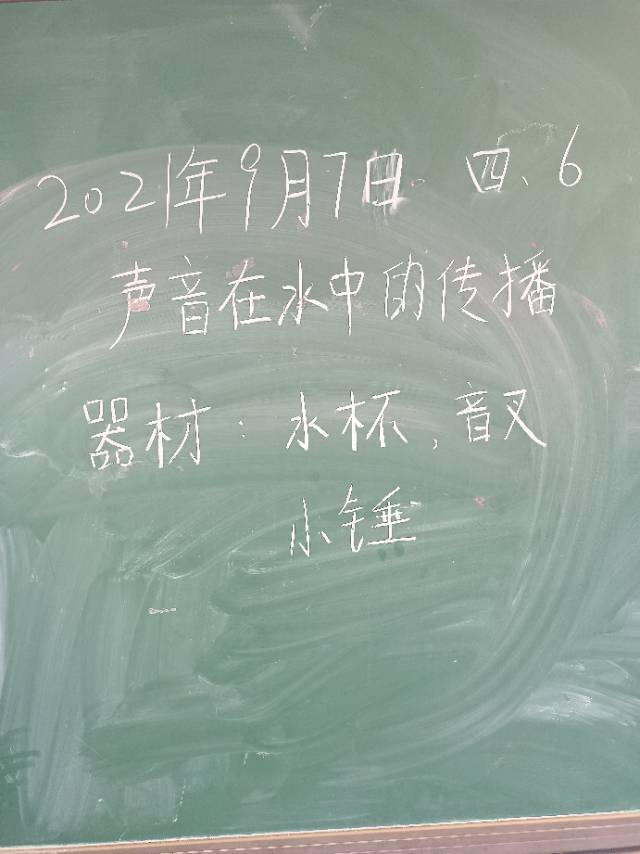 2021年9月7日. 四、6
声音在水中的传播
器材:水杯,音叉
小锤